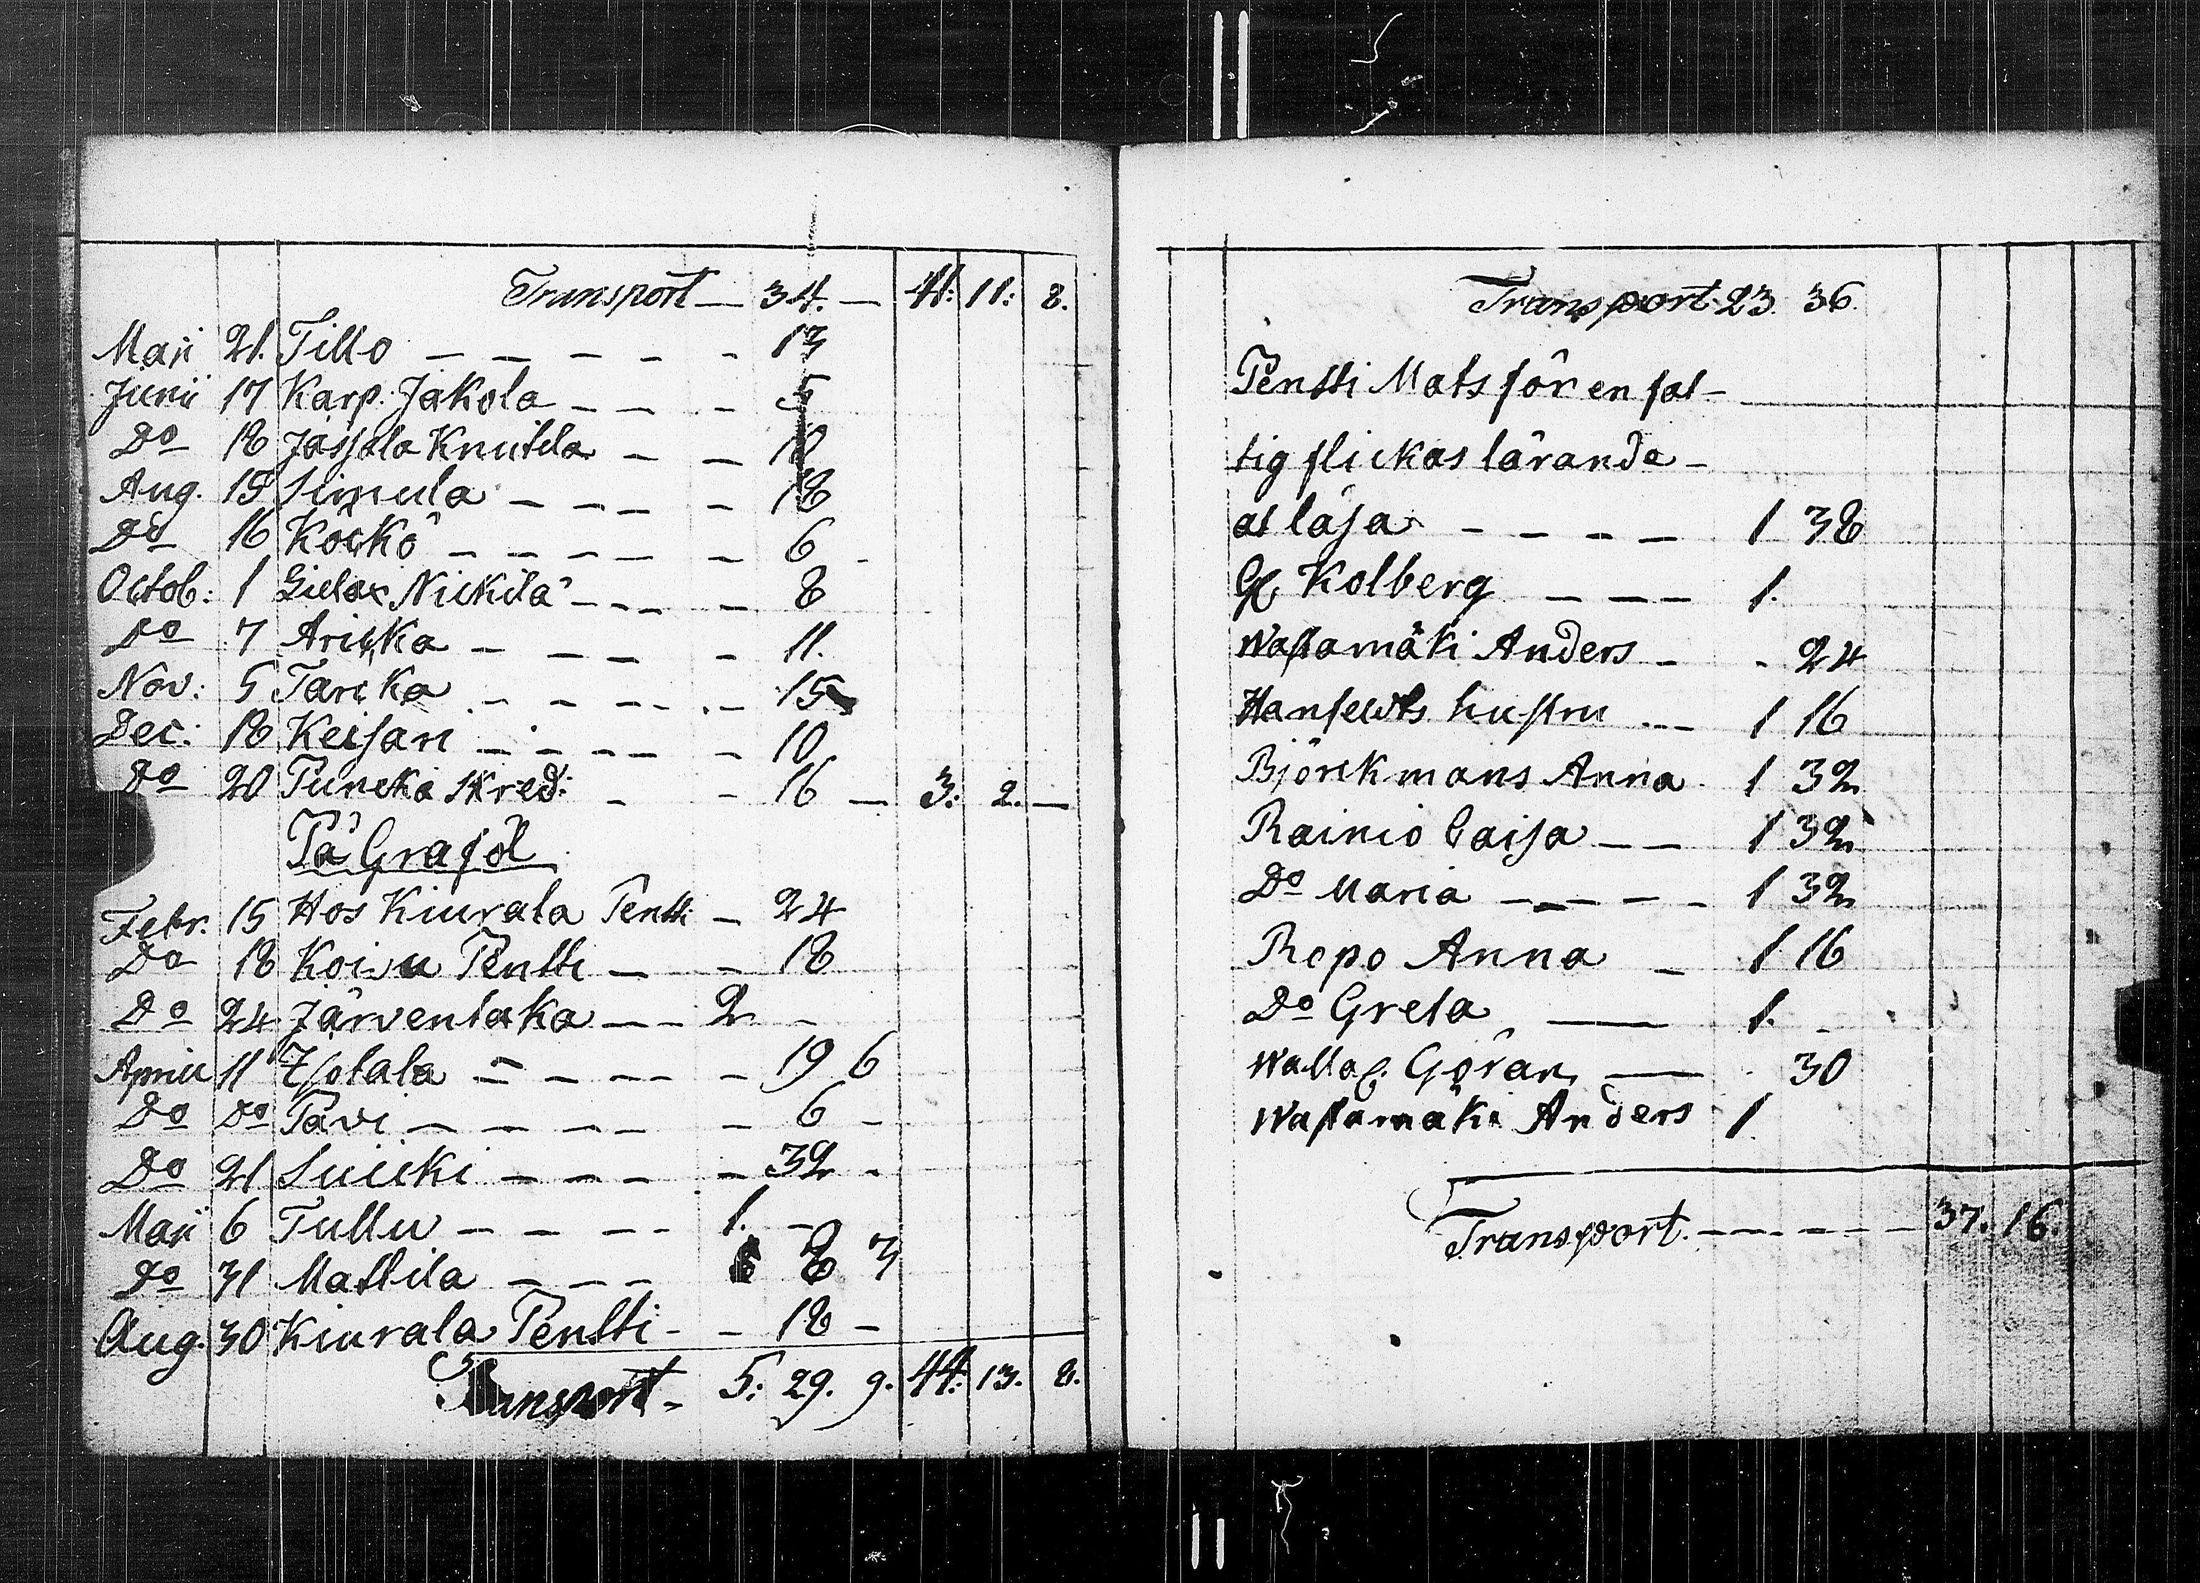 Transport — 34. — 41: 11: 8.
Maji 21. Tillo — — — — - 13
Junii 17 Karp. Jakola — — - 5
Do 18 Jäsjälä Knutila — — 10
Aug. 15 Simula — — — - 18
Do 16 Köckö — — — — - 6 -
Octob: 1 Nickilä — — - 8
Do 7 Aricka — — — - 11.
Nov: 5 Taricka — — — — 15
Dec: 18 Keisari — — — — - 10
Do 20 Puncka Skred: — - 16 — 3: 2. —
På Graföl
Febr. 15 Hos Kiurala Pentti — 24
Do 18 Koivu Pentti — - 18
Do 24 Järventaka — - 2 -
Aprill 11 Isotala — — — - 19 6
Do Do Pavi — — — — - 6 -
Do 21 Suicki — — — - 32 -
Maji 6 Tullu — — — — 1. -
Do 31 Mattila — — — 8 3
Aug. 30 Kiurala Pentti - - 18 —
Transport - 5: 29. 9. 44: 13. 8.
Transport 23. 36.
Pentti Mats för en fat-
tig flickas lärande
at läsa — — — — 1 38
Gl Kolberg — — — 1.
Wastamäki Anders — - 24
hustru — 1 16
Björckmans Anna 1 32
Rainio Caisa — — 1 32
Do Maria — — — — 1 32
Repo Anna — 1 16
Do Greta — 1. -
Göran — - 30
Wastamäki Anders 1
Transport. — — — — — 37. 16.